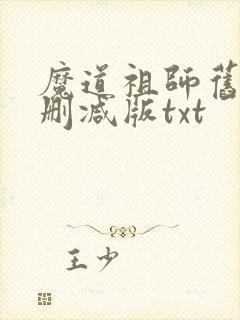 魔道祖師舊
删减版txt
王少